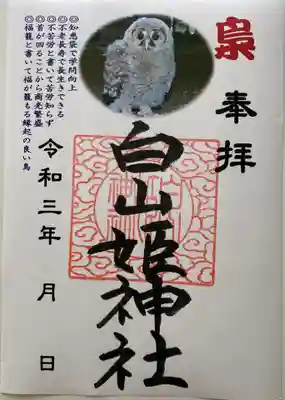 梟
奉拝
白山姫神社
令和三年　月　日
◎知恵袋で学問向上
◎不老長寿で長生きできる
◎不苦労と書いて苦労知らず
◎首が回ることから商売繁盛
◎福籠と書いて福が籠もる縁起の良い鳥